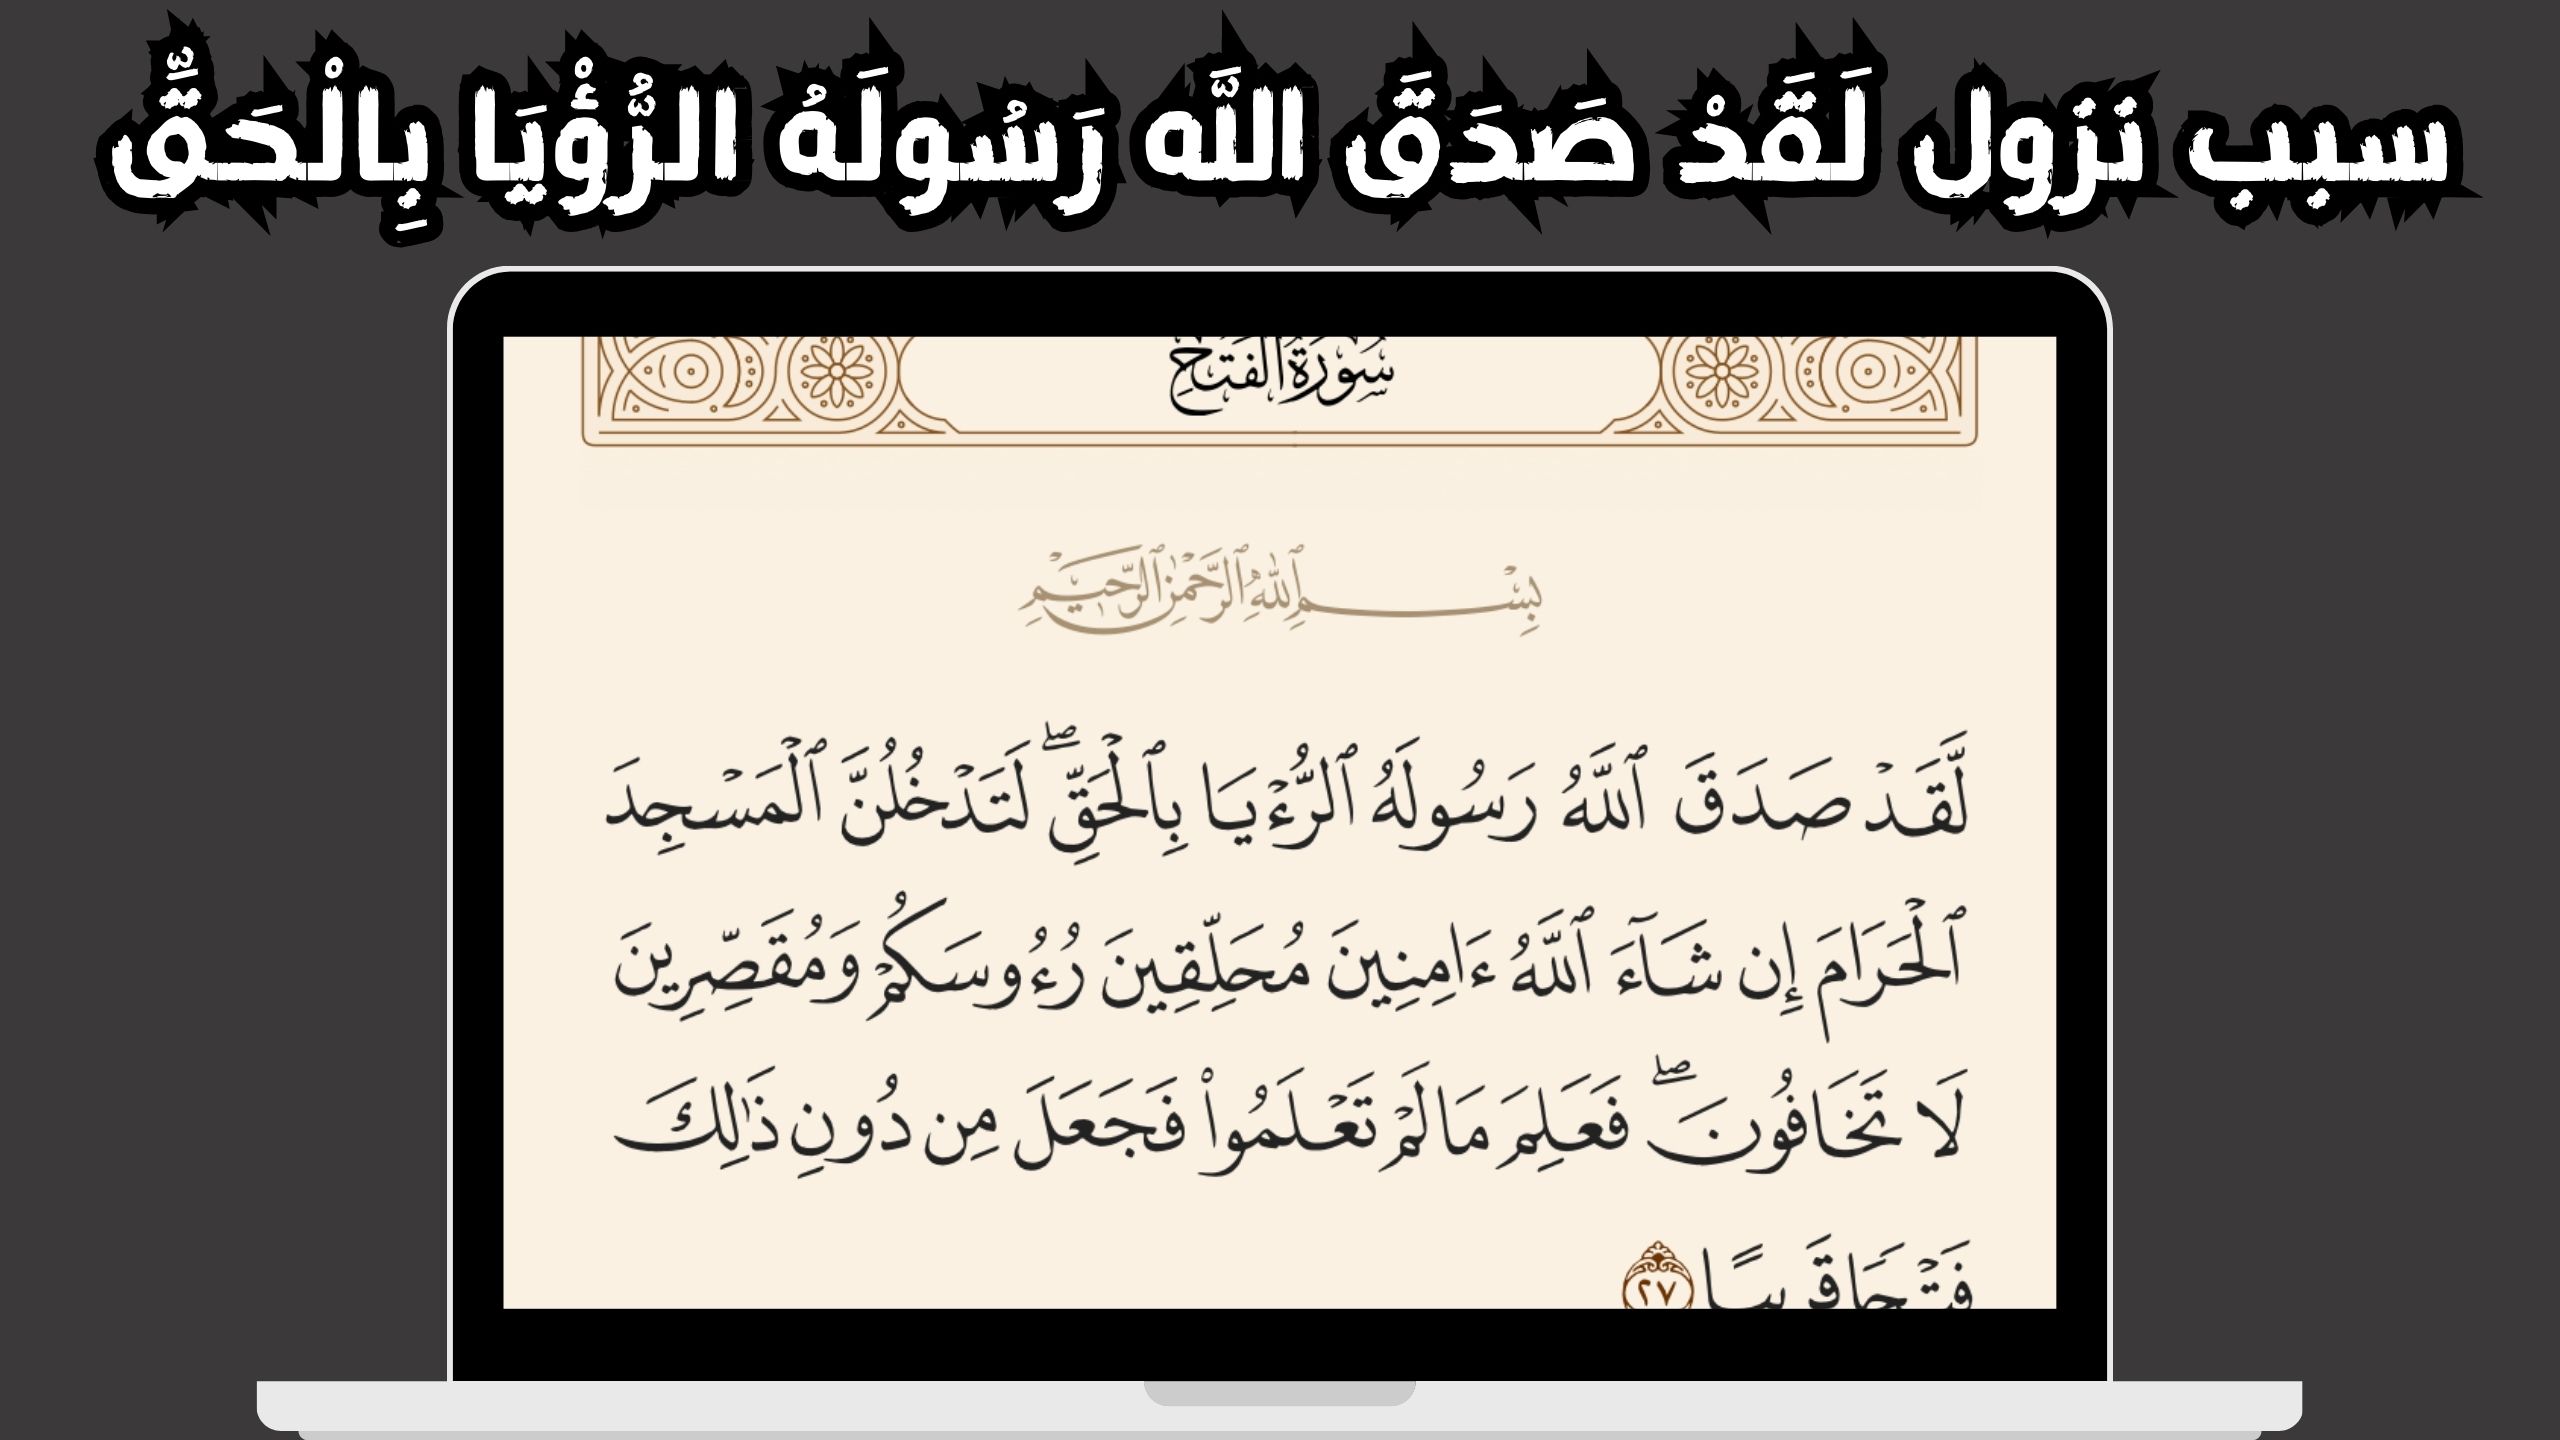 سبب نَزَول لَقَدْ صَدَقَ اللَّه رَسُولَهُ الرُّؤْيَا بِالْحَقِّ
سُورَةُ الْفَتْحِ
بِسْمِ ٱللَّهِ ٱلرَّحْمَٰنِ ٱلرَّحِيمِ
لَّقَدْ صَدَقَ ٱللَّهُ رَسُولَهُ ٱلرُّءْيَا بِٱلْحَقِّ ۖ لَتَدْخُلُنَّ ٱلْمَسْجِدَ
ٱلْحَرَامَ إِن شَآءَ ٱللَّهُ ءَامِنِينَ مُحَلِّقِينَ رُءُوسَكُمْ وَمُقَصِّرِينَ
لَا تَخَافُونَ ۖ فَعَلِمَ مَا لَمْ تَعْلَمُوا۟ فَجَعَلَ مِن دُونِ ذَٰلِكَ
فَتْحًا قَرِيبًا ٢٧